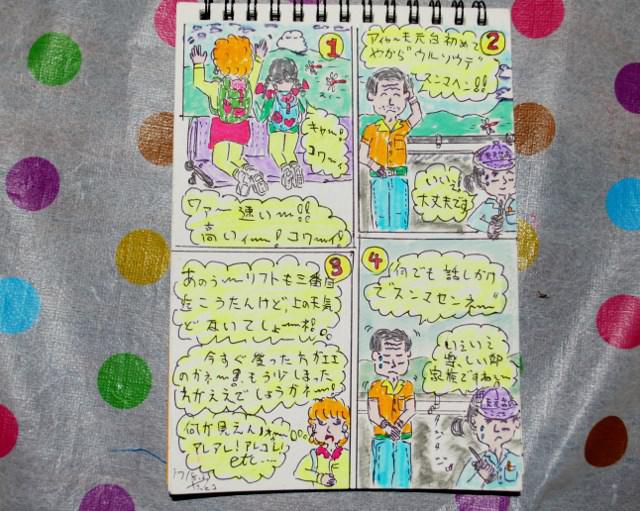 1
キャー!
コワ〜
ワァー 速い〜!!
高いィ〜! コワ〜イ!
2
も元台初めて
やから"ウルソウテ"
スンマヘン!!
いいえ!
大丈夫です
3
あのぅ〜リフトも三番目
たこうたんけど、上の天気
どないでしょーね。
今すぐ登った方がエエ
のかネー!もう少しまった
方がええでしょうかネー!
何が見えん
アレアレ!アレコレ!
etc…
4
何でも話しかけ
てスンマセンネー
いえいえ
楽しい御
家族ですね